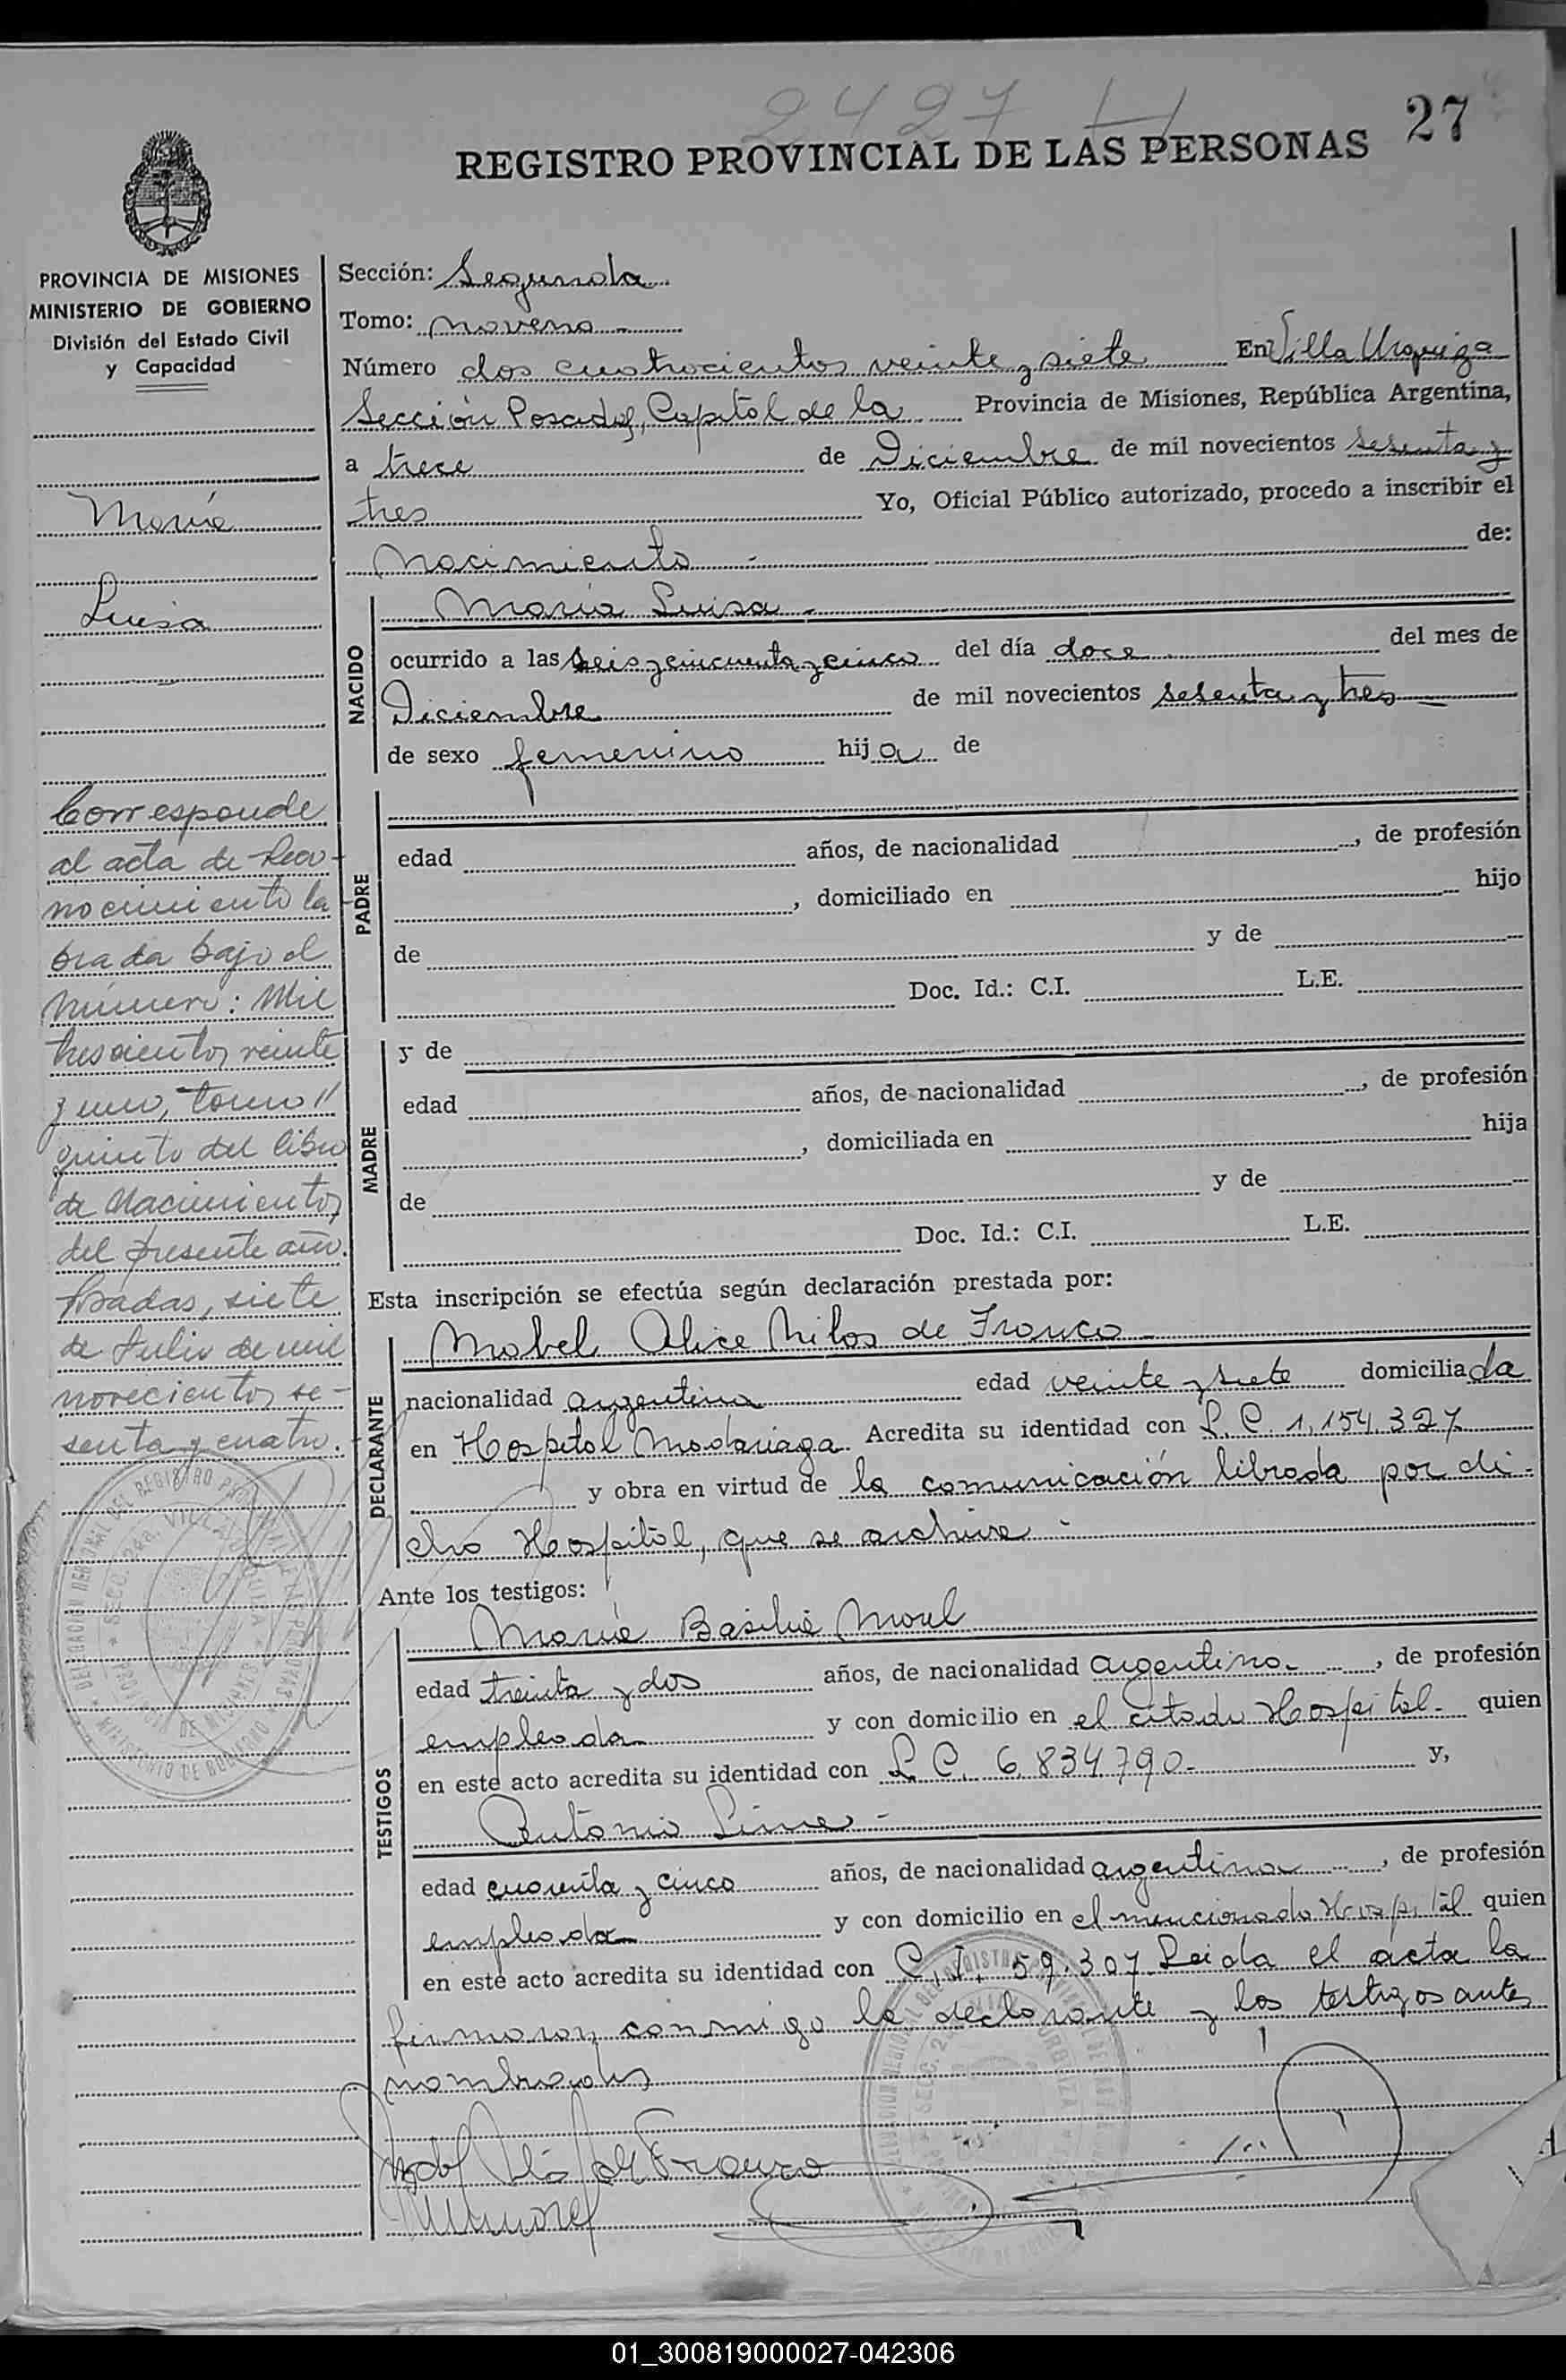 2427
27
REGISTRO PROVINCIAL DE LAS PERSONAS
PROVINCIA DE MISIONES
MINISTERIO DE GOBIERNO
División del Estado Civil
y Capacidad
María
Luisa
Corresponde
al acta de Reco-
nocimiento la
brada bajo el
número: Mil
trescientos veinte
y uno, tomo //
quinto del libro
de Nacimientos
del presente año.
Posadas, siete
de Julio de mil
novecientos se-
senta y cuatro.
Sección: Segunda
Tomo: noveno -
Número dos cuatrocientos veinte y siete En Villa Urquiza
Sección Posadas, Capital de la Provincia de Misiones, República Argentina,
a trece de Diciembre de mil novecientos sesenta y
tres Yo, Oficial Público autorizado, procedo a inscribir el
Nacimiento - de:
NACIDO
María Luisa -
ocurrido a las seis y cincuenta y cinco del día doce del mes de
Diciembre de mil novecientos sesenta y tres
de sexo femenino hija de
PADRE
edad años, de nacionalidad , de profesión
, domiciliado en hijo
de y de
Doc. Id.: C.I. L.E.
MADRE
y de
edad años, de nacionalidad , de profesión
, domiciliada en hija
de y de
Doc. Id.: C.I. L.E.
Esta inscripción se efectúa según declaración prestada por:
DECLARANTE
Mabel Alice Milos de Franco -
nacionalidad argentina edad veinte y siete domiciliada
en Hospital Madariaga Acredita su identidad con L. C. 1,154.327
y obra en virtud de la comunicación librada por di-
cho Hospital, que se archiva -
Ante los testigos:
TESTIGOS
María Basilia Morel
edad treinta y dos años, de nacionalidad argentina - , de profesión
empleada y con domicilio en el citado Hospital - quien
en este acto acredita su identidad con L C. 6.834.790 - y,
Antonio Lima -
edad cuarenta y cinco años, de nacionalidad argentina , de profesión
empleada y con domicilio en el mencionado Hospital quien
en este acto acredita su identidad con C. I. 59.307 Leída el acta la
firmaron conmigo la declarante y los testigos antes
nombrados
de Franco
MMorel
01_300819000027-042306